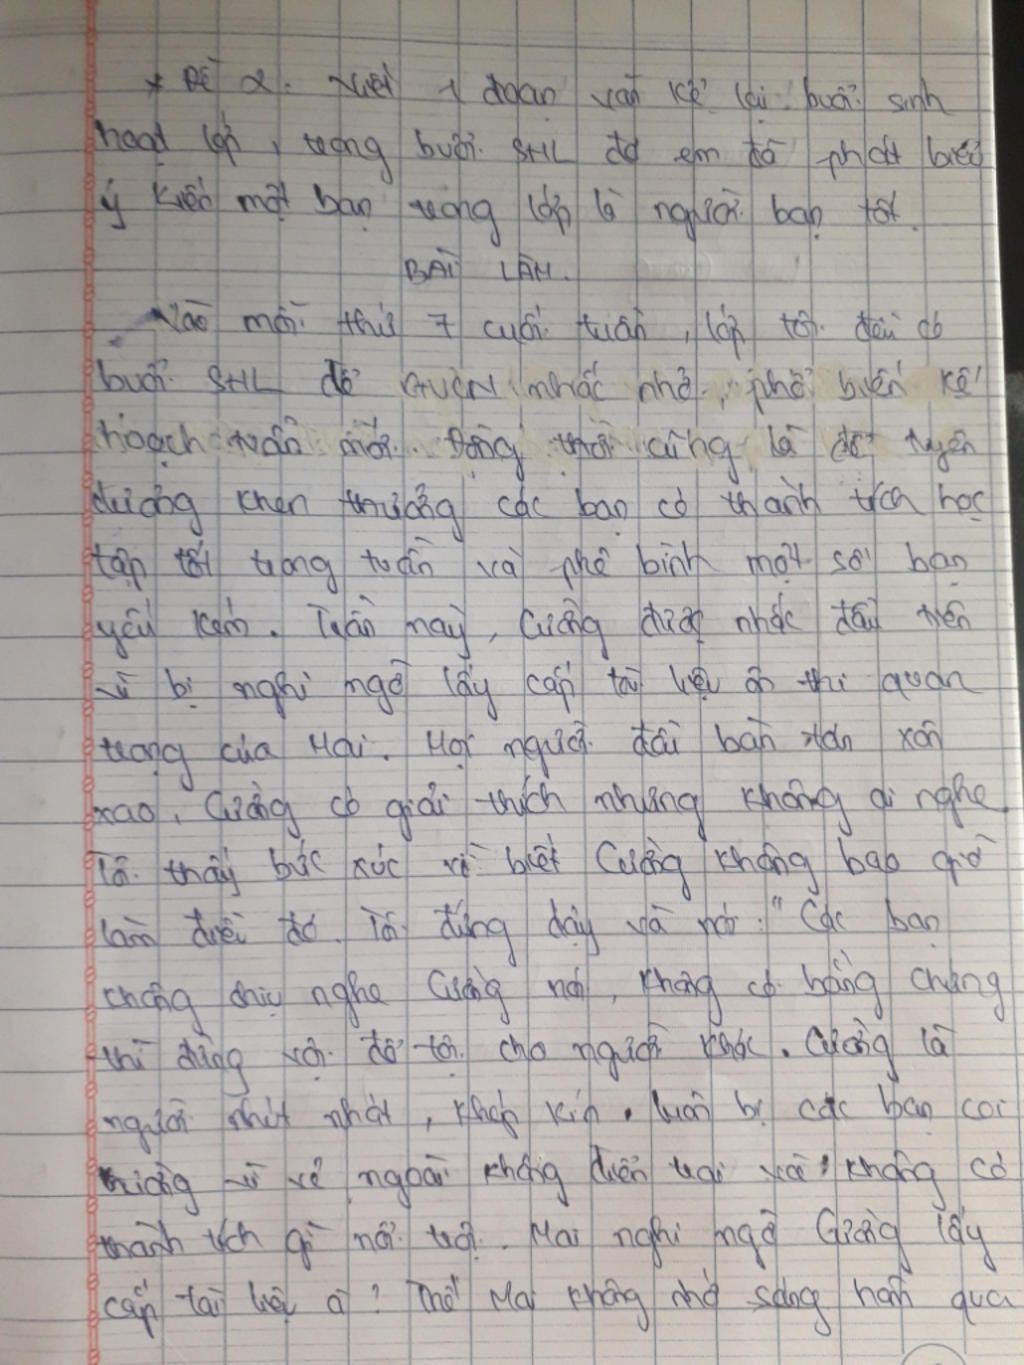 * Đề 2. Viết 1 đoạn văn kể lại buổi sinh
hoạt lớp, trong buổi SHL đó em đã phát biểu
ý kiến một bạn trong lớp là người bạn tốt.
BÀI LÀM.
Vào mỗi thứ 7 cuối tuần, lớp tôi đều có
buổi SHL để GVCN nhắc nhở, phổ biến kế
hoạch tuần mới. Đồng thời cũng là để tuyên
dương khen thưởng các bạn có thành tích học
tập tốt trong tuần và phê bình một số bạn
yếu kém. Tuần này, Cường được nhắc đầu tiên
vì bị nghi ngờ lấy cắp tài liệu ôn thi quan
trọng của Mai. Mọi người đều bàn tán xôn
xao, Cường có giải thích nhưng không ai nghe.
Tôi thấy bức xúc vì biết Cường không bao giờ
làm điều đó. Tôi đứng dậy và nói: "Các bạn
chẳng chịu nghe Cường nói, không có bằng chứng
thì đừng vội đổ tội cho người khác. Cường là
người nhút nhát, khép kín, luôn bị các bạn coi
thường vì vẻ ngoài không điển trai và không có
thành tích gì nổi trội. Mai nghi ngờ Cường lấy
cắp tài liệu à? Thế Mai không nhớ sáng hôm qua